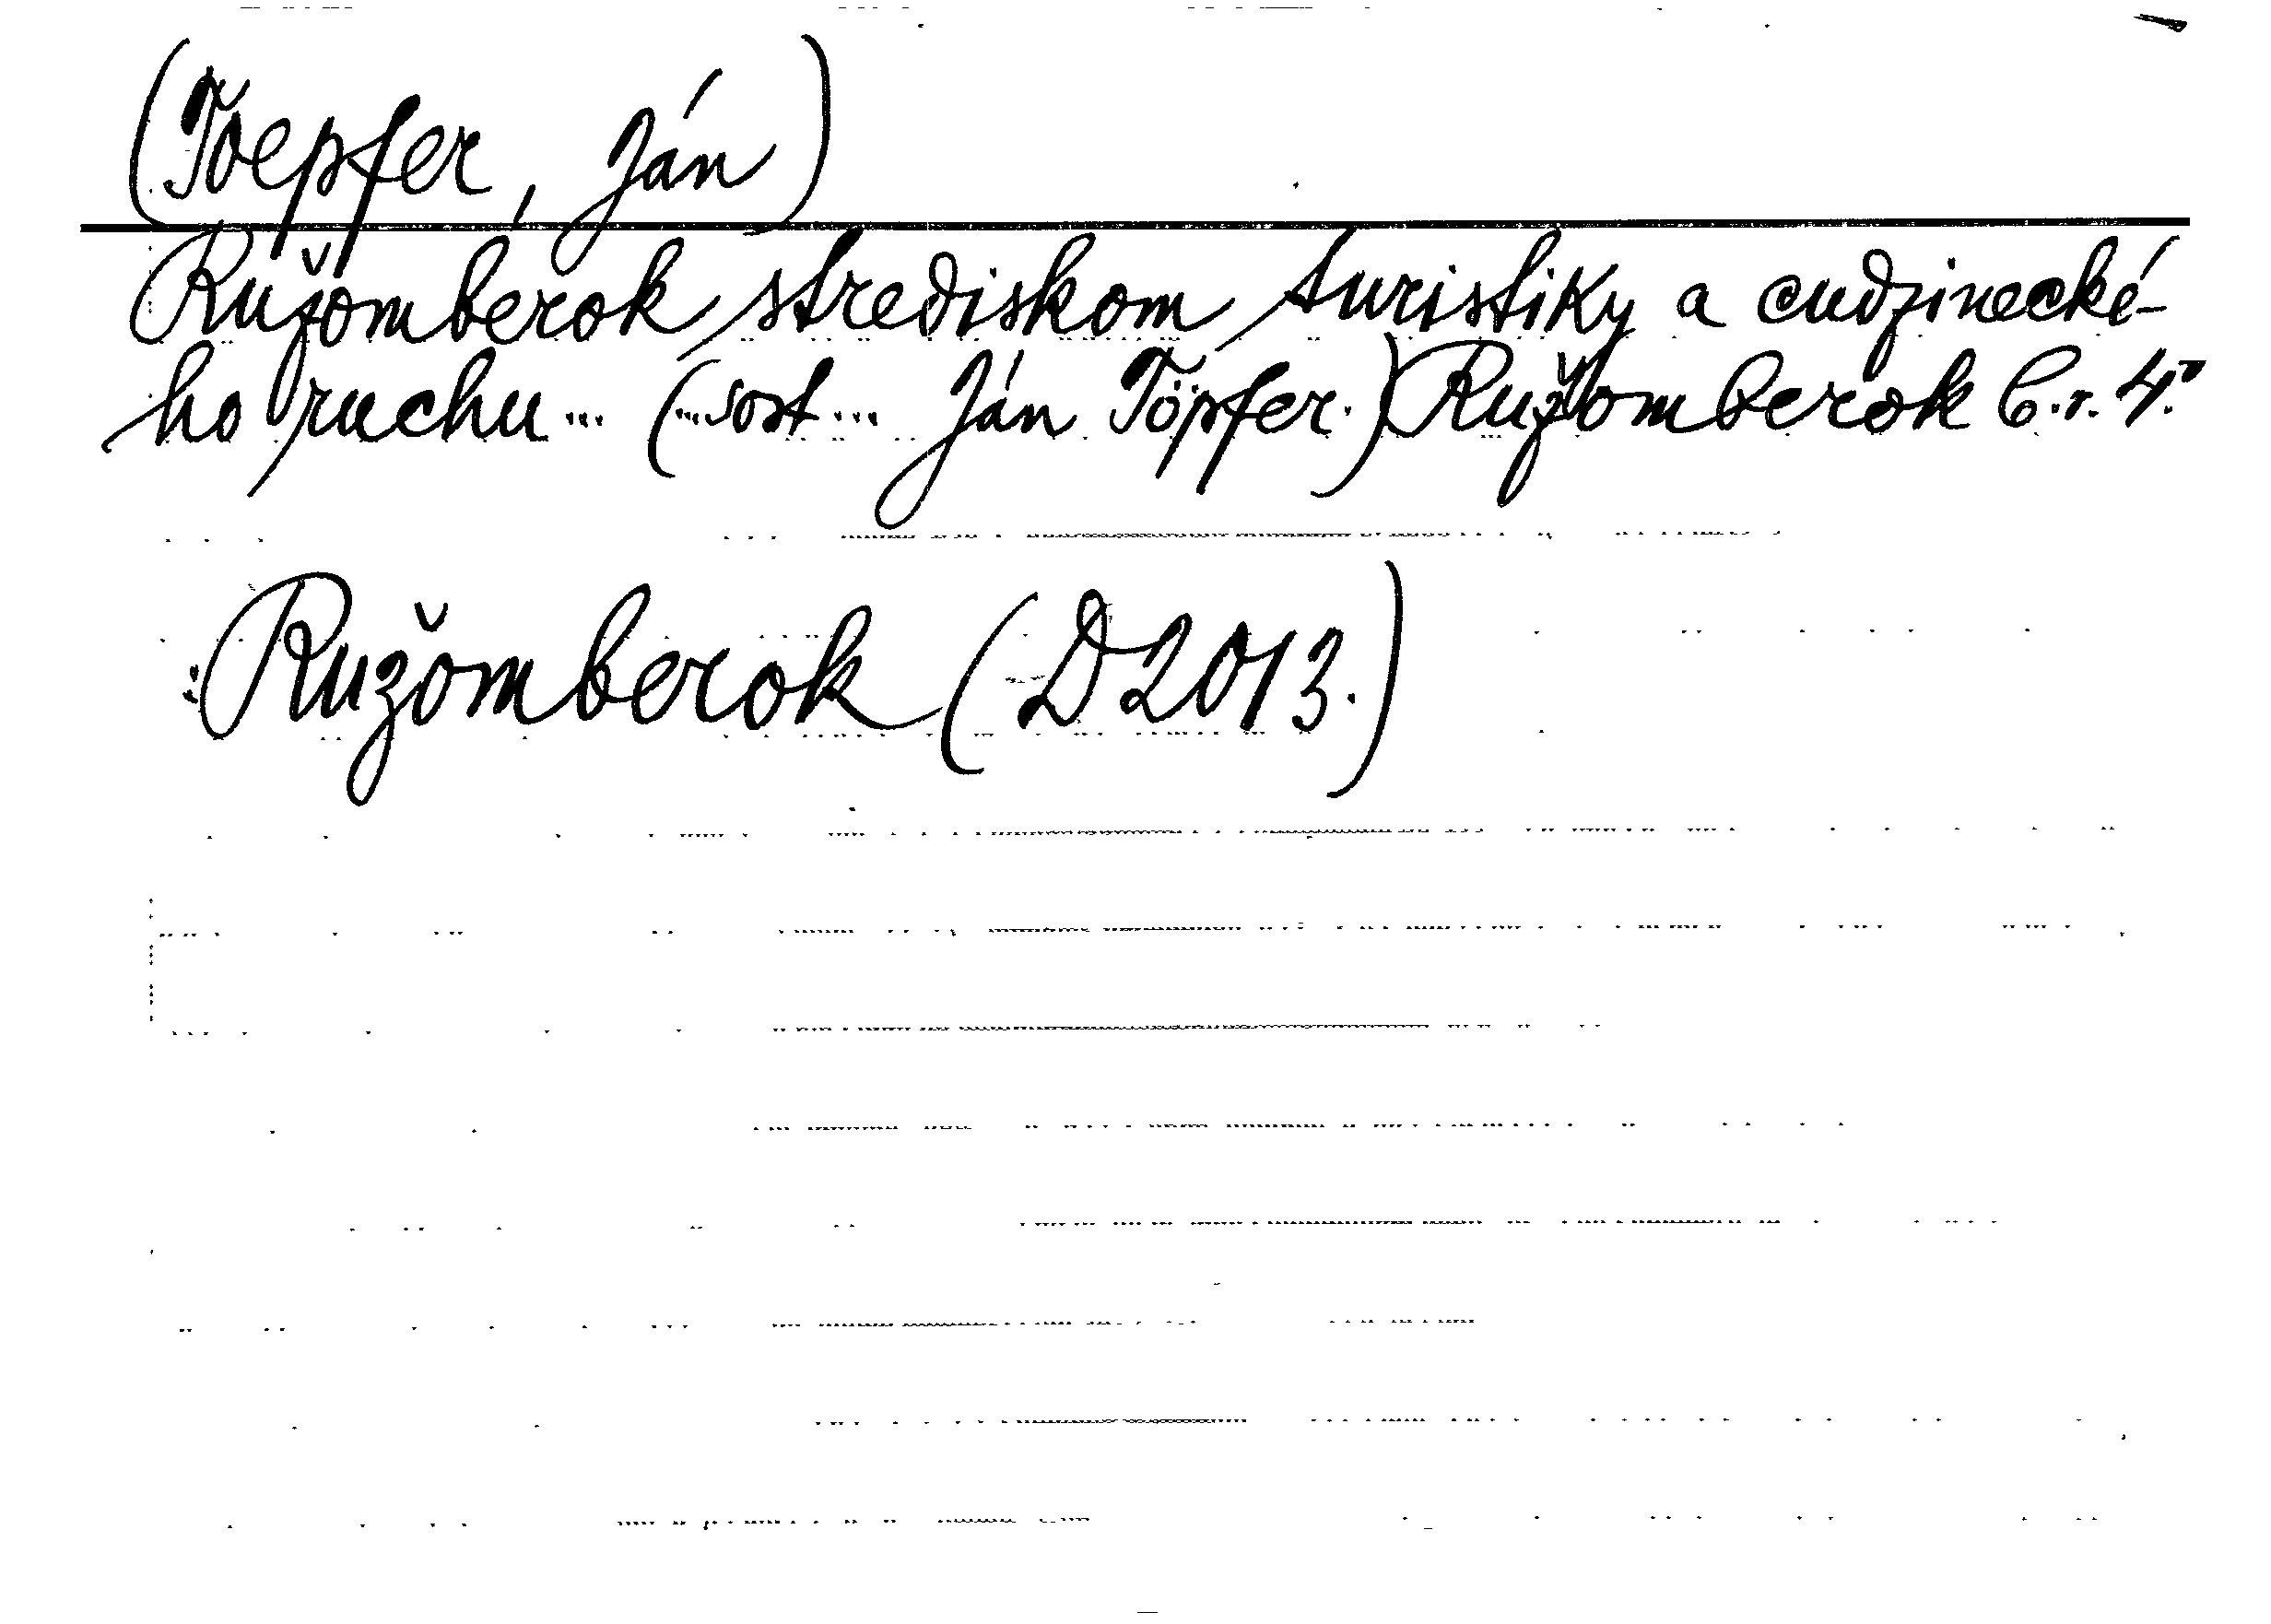 (Toepfer, Ján)
Ružomberok strediskom turistiky a cudzinecké-
ho ruchu... (...sost... Ján Töpfer.) Ružomberok b.r. 4°.
: Ružomberok (D2013.)